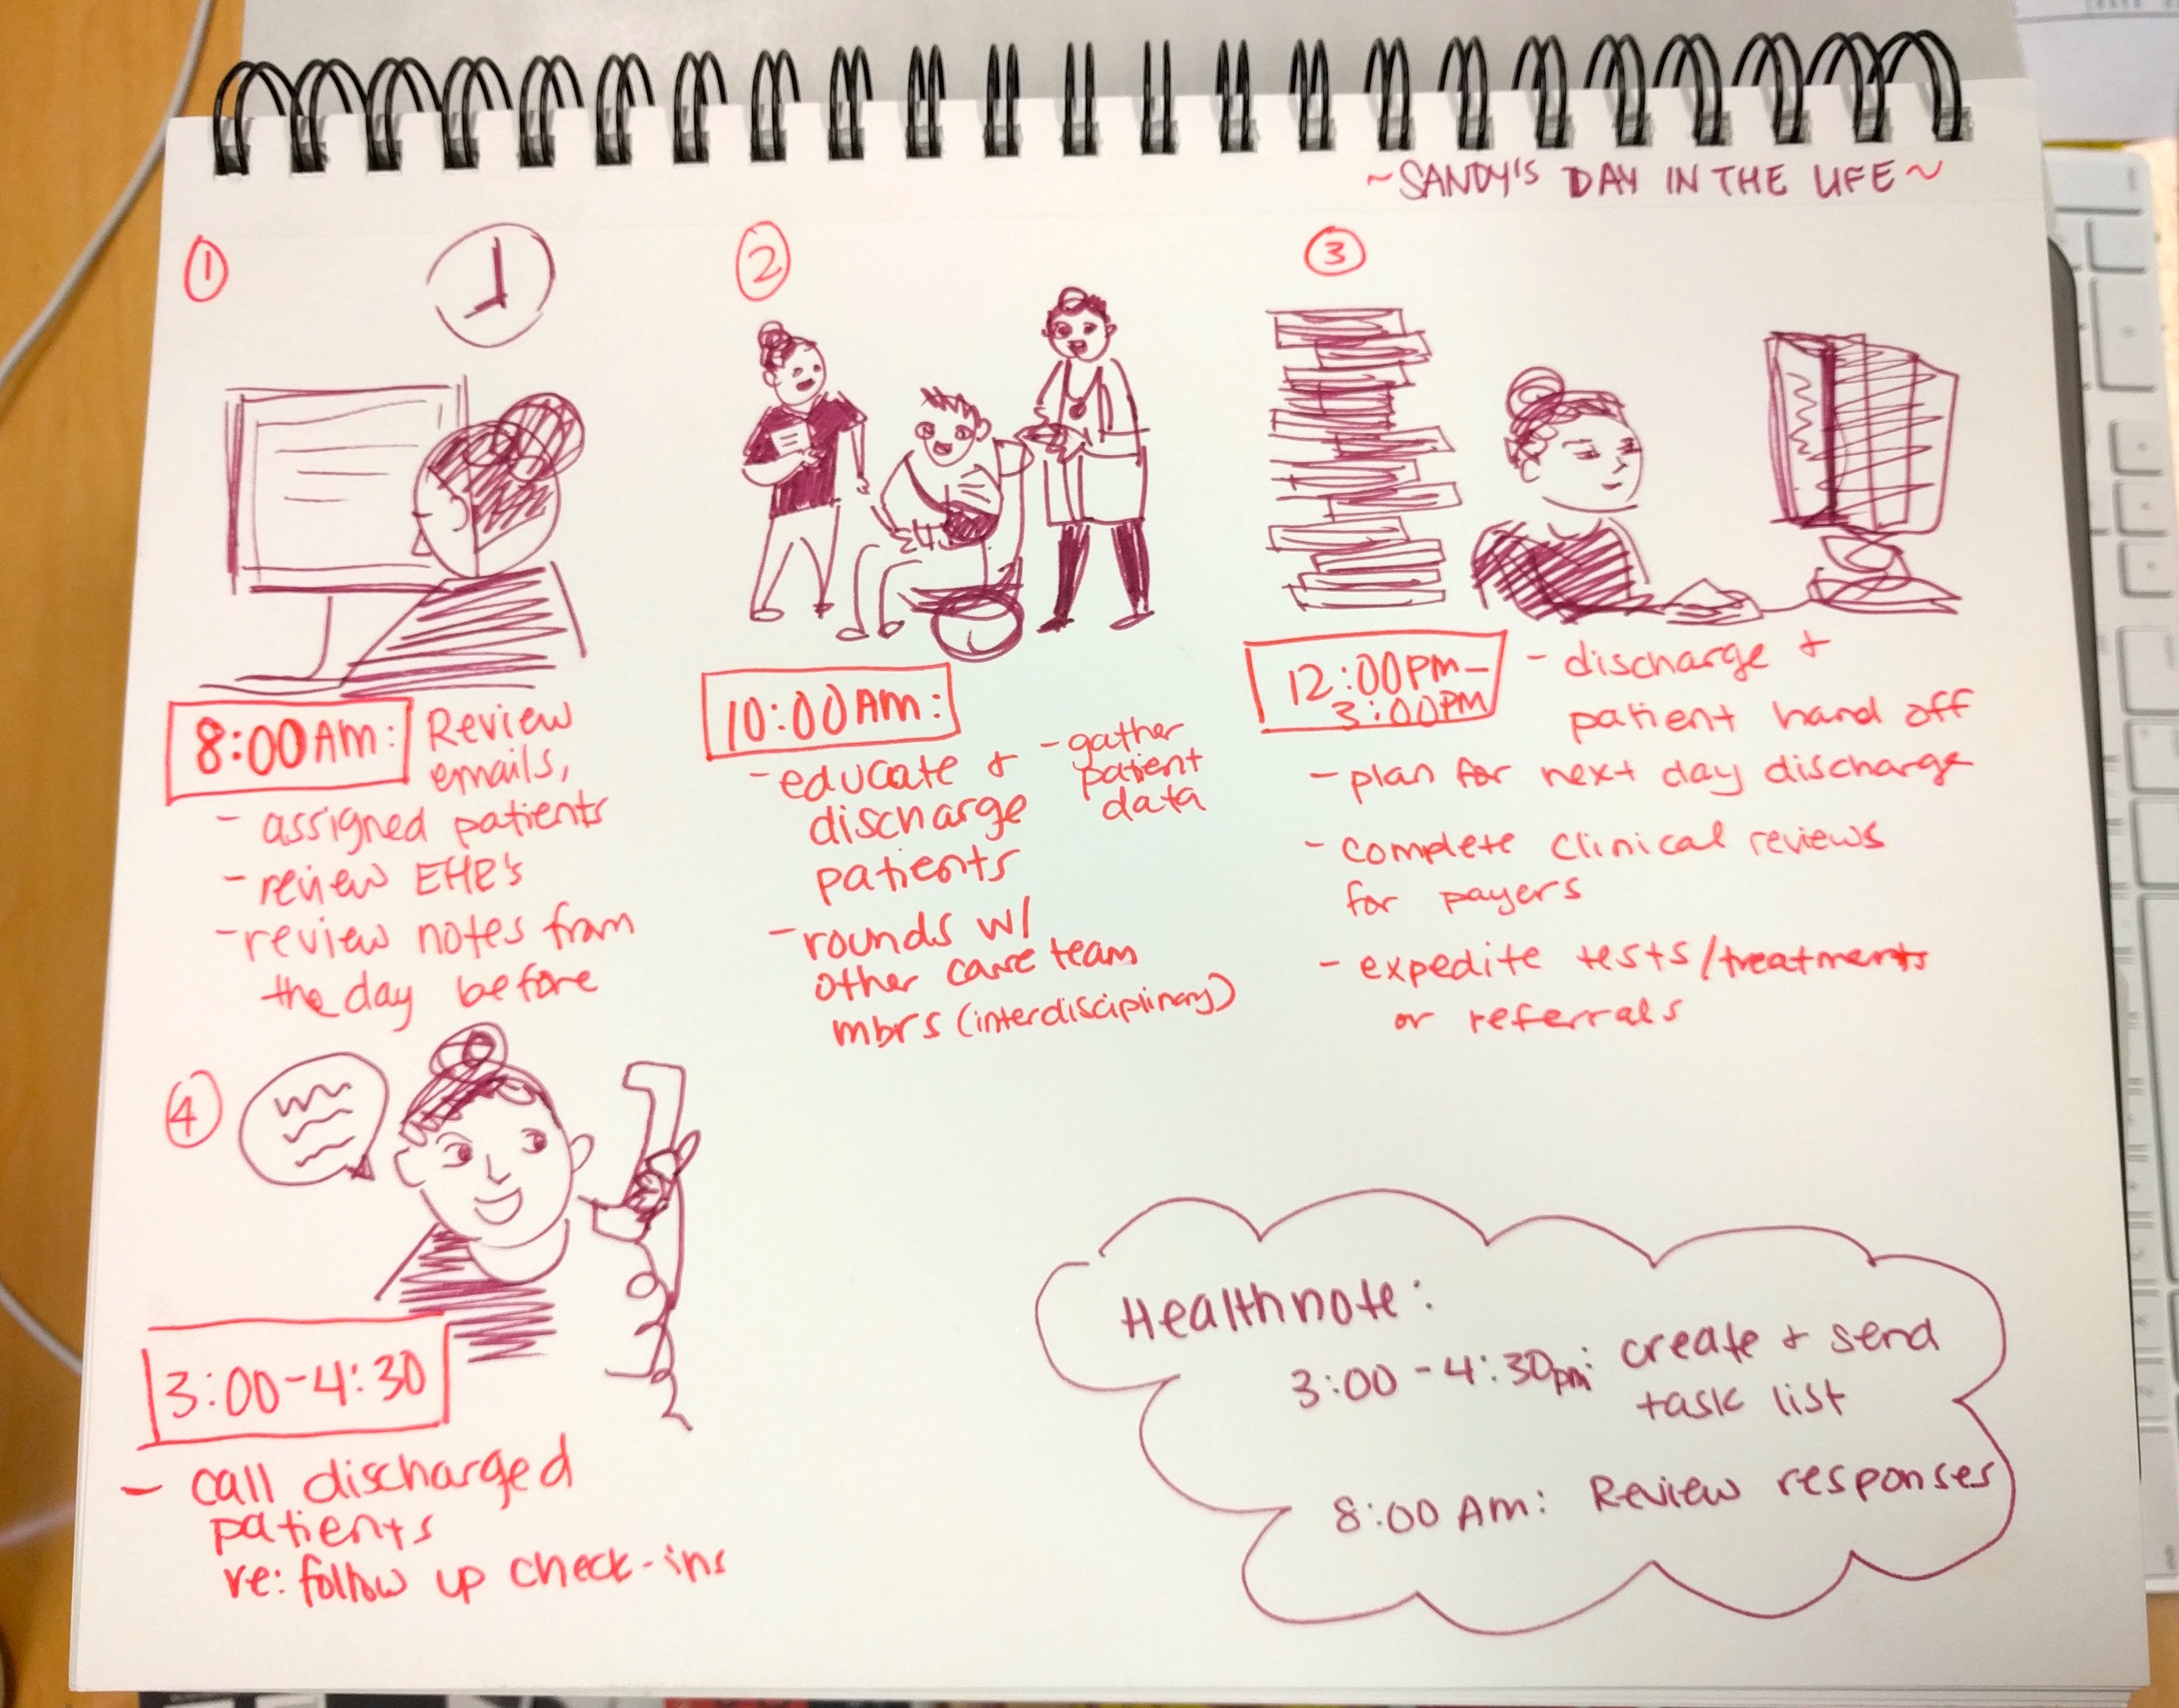 ~SANDY'S DAY IN THE LIFE~
1
8:00AM: Review
emails,
- assigned patients
- review EHR's
- review notes from
the day before
2
10:00AM:
- educate &
discharge
patients
- gather
patient
data
- rounds w/
other care team
mbrs (interdisciplinary)
3
12:00PM-
3:00PM
- discharge &
patient hand off
- plan for next day discharge
- complete clinical reviews
for payers
- expedite tests/treatments
or referrals
4
3:00-4:30
- call discharged
patients
re: follow up check-ins
Healthnote:
3:00-4:30pm: create & send
task list
8:00 AM: Review responses